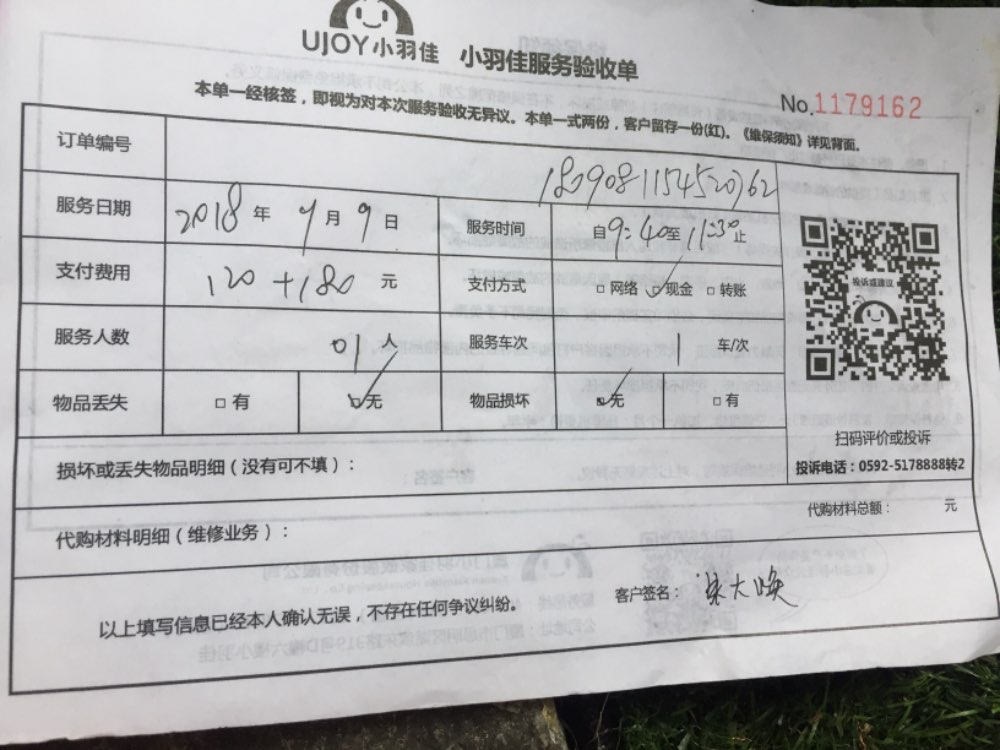 UJOY小羽佳 小羽佳服务验收单
No.1179162
本单一经核签，即视为对本次服务验收无异议。本单一式两份，客户留存一份(红)。《维保须知》详见背面。
订单编号 1809081154520762
服务日期 2018年9月9日 服务时间 自9:40至11:30止
支付费用 120+180 元 支付方式 □网络 ☑现金 □转账
服务人数 01人 服务车次 1 车/次
物品丢失 □有 ☑无 物品损坏 ☑无 □有
投诉或建议
扫码评价或投诉
投诉电话：0592-5178888转2
损坏或丢失物品明细（没有可不填）：
代购材料明细（维修业务）：
代购材料总额： 元
以上填写信息已经本人确认无误，不存在任何争议纠纷。
客户签名：